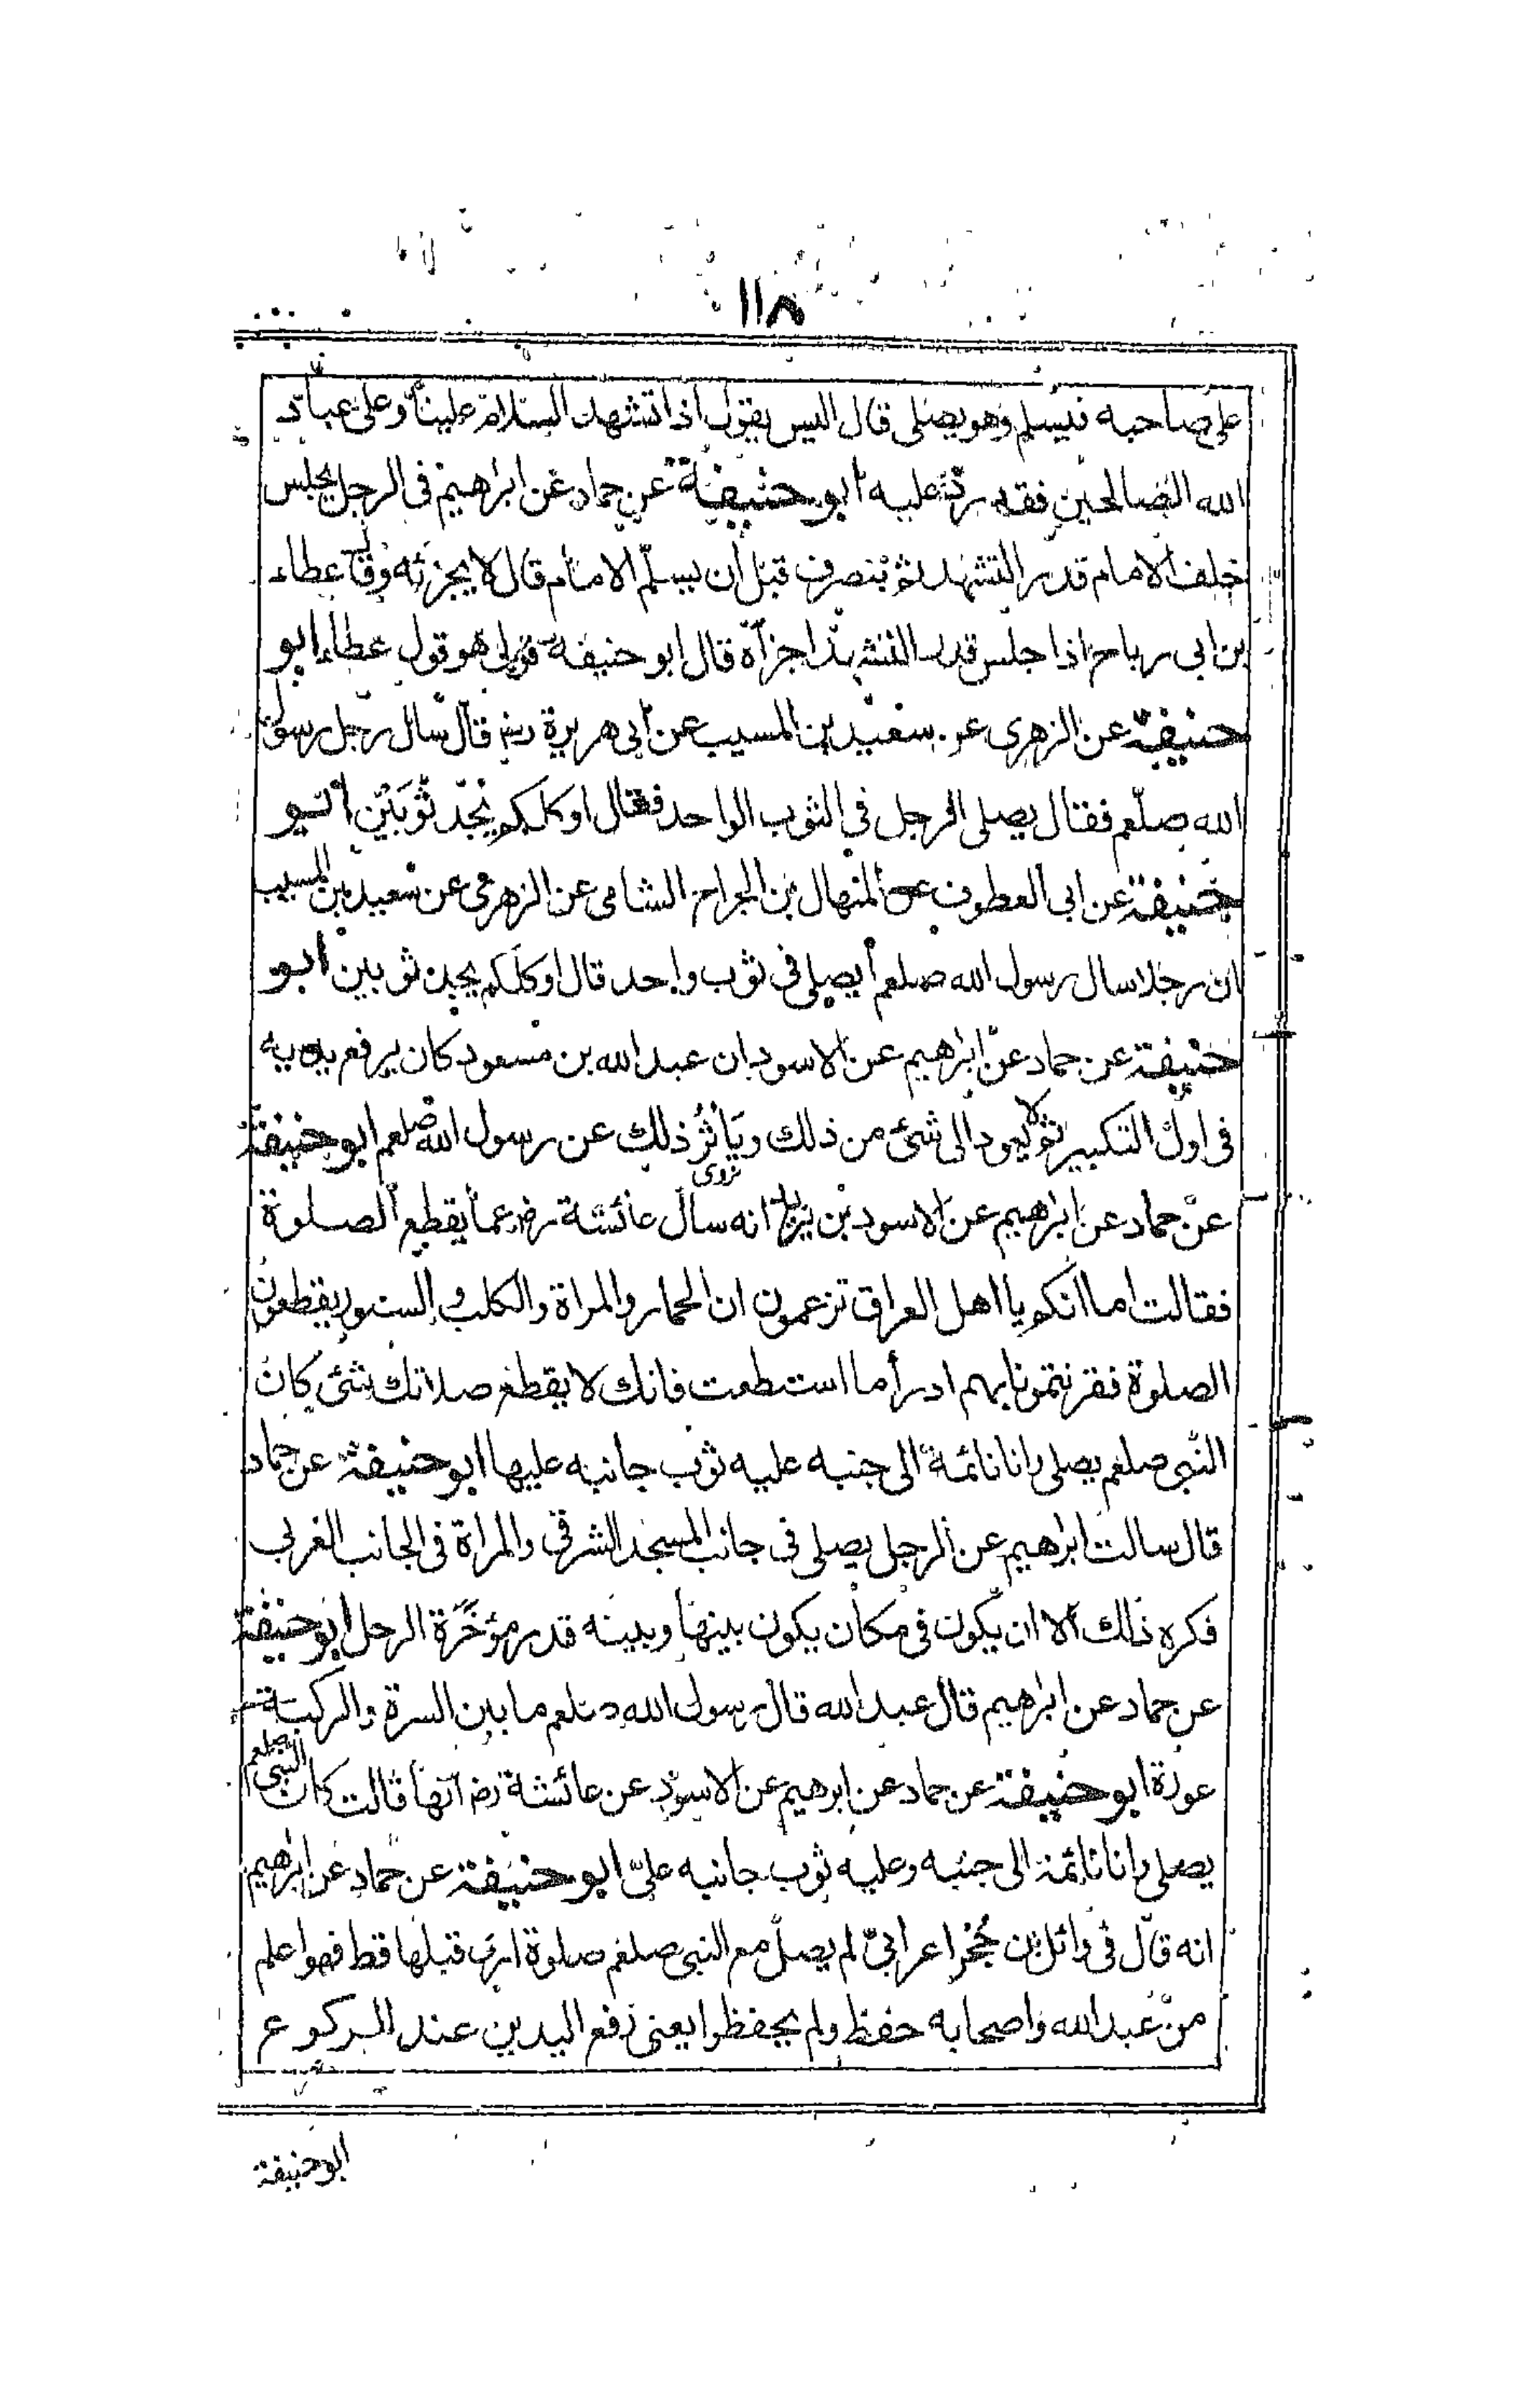 ١١٨
على صاحبه فيسلم وهو يصلى قال اليس يقول اذا تشهد السلام علينا وعلى عباد
الله الصالحين فقد رد عليه ابو حنيفة عن حماد عن ابراهيم فى الرجل يجلس
خلف الامام قدر التشهد ثم ينصرف قبل ان يسلّم الامام قال لا يجزئه وقال عطاء
بن ابى رباح اذا جلس قدر التشهد اجزأه قال ابو حنيفة قولى هو قول عطاء ابو
حنيفة عن الزهرى عن سعيد بن المسيب عن ابى هريرة رضـ قال سال رجل رسول
الله صلّعم فقال يصلى الرجل فى الثوب الواحد فقال اوكلكم يجد ثوبَيْن ابو
حنيفة عن ابى العطوف عن المنهال بن الجراح الشامى عن الزهرى عن سعيد بن المسيب
ان رجلا سال رسول الله صلعم أيصلى فى ثوب واحد قال اوكلّكم يجد ثوبين ابو
حنيفة عن حماد عن ابرٰهيم عن الاسود ان عبد الله بن مسعود كان يرفع يديه
فى اول التكبير ثم لا يعود الى شئ من ذلك ويَأثرُ ذلك عن رسول الله صلعم ابو حنيفة
يروى
عن حماد عن ابرٰهيم عن الاسود بن يزيد انه سال عائشة رضـ عما يقطع الصلوة
فقالت اما انكم يا اهل العراق تزعمون ان الحمار والمراة والكلب والسنور يقطعون
الصلوة فقرنتمونا بهم ادرأ ما استطعت فانك لا يقطع صلاتك شئ كان
النبى صلعم يصلى وانا نائمة الى جنبه عليه ثوب جانبه عليها ابو حنيفة عن حماد
قال سالت ابرٰهيم عن الرجل يصلى فى جانب المسجد الشرقى والمراة فى الجانب الغربى
فكره ذلك الا ان يكون فى مكان يكون بينها وبينه قدر مؤخَّرة الرحل ابو حنيفة
عن حماد عن ابرٰهيم قال عبد الله قال رسول الله صلعم ما بين السرة والركبة
عورة ابو حنيفة عن حماد عن ابرهيم عن الاسود عن عائشة رضـ انّها قالت كان النبى صلعم
يصلى وانا نائمة الى جنبه وعليه ثوب جانبه علىّ ابو حنيفة عن حماد عن ابرٰهيم
انه قال فى وائل بن حُجْر اعرابىّ لم يصلّ مع النبى صلعم صلوة قبلها قط فهو اعلم
من عبد الله واصحابه حفظ ولم يحفظوا يعنى رفع اليدين عند الركوع
ابو حنيفة